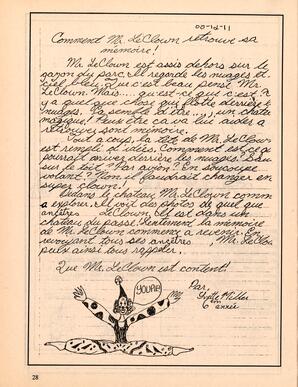 11-14-00
Comment Mr. LeClown retrouve sa
mémoire!
Mr. LeClown est assis dehors sur le
gazon du parc. Il regarde les nuages et
ciel bleu. Que c'est beau pense Mr.
LeClown. Mais... qu'est-ce que c'est? Il
y a quelque chose qui flotte derrière le
nuages. Ça semble d'être... un chateau
magique! Peut être ca va lui aider a
retrouver sont mémoire.
Tout a coup, la tête de Mr. LeClown
est rempli d'idées. Comment est-ce qu
pourrait arriver derrière les nuages. Sau
sur le toit? Par avion? En soucoupe
volant? Non il faudrait changer en
super clown!
dedans le chateau, Mr. LeClown comm
a explorer. Il voit des photos de quel que
ancêtres LeClown. Il est dans un
chateau du passé. Lentement la mémoire
de Mr. LeClown commence a revenir. En
revoyant tous ses ancêtres Mr. LeClow
peux ainsi tous rappeler.
Que Mr. LeClown est content!
YOUPI!
Par,
Miller
6e année
28